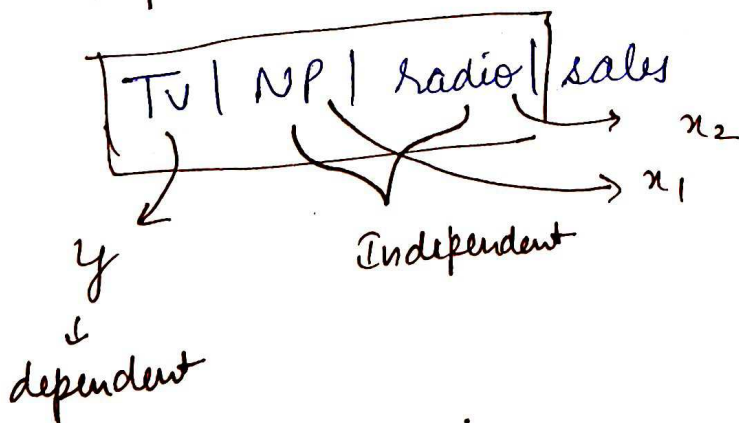 Tv | NP | radio | sales
x2
x1
y
Independent
dependent